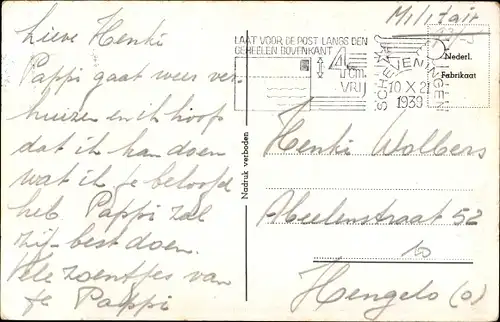 Lieve Henki
Pappi gaat weer ver-
huizen en ik hoop
dat ik kan doen
wat ik je beloofd
heb. Pappi zal
zijn best doen.
Vele zoentjes van
je Pappi
Nadruk verboden
Militair
LAAT VOOR DE POST LANGS DEN
GEHEELEN BOVENKANT
4 cm.
VRIJ
SCHEVENINGEN
10 X 21
1939
Nederl.
Fabrikaat
Henki Wolbers
Abeelenstraat 52
to
Hengelo (O)